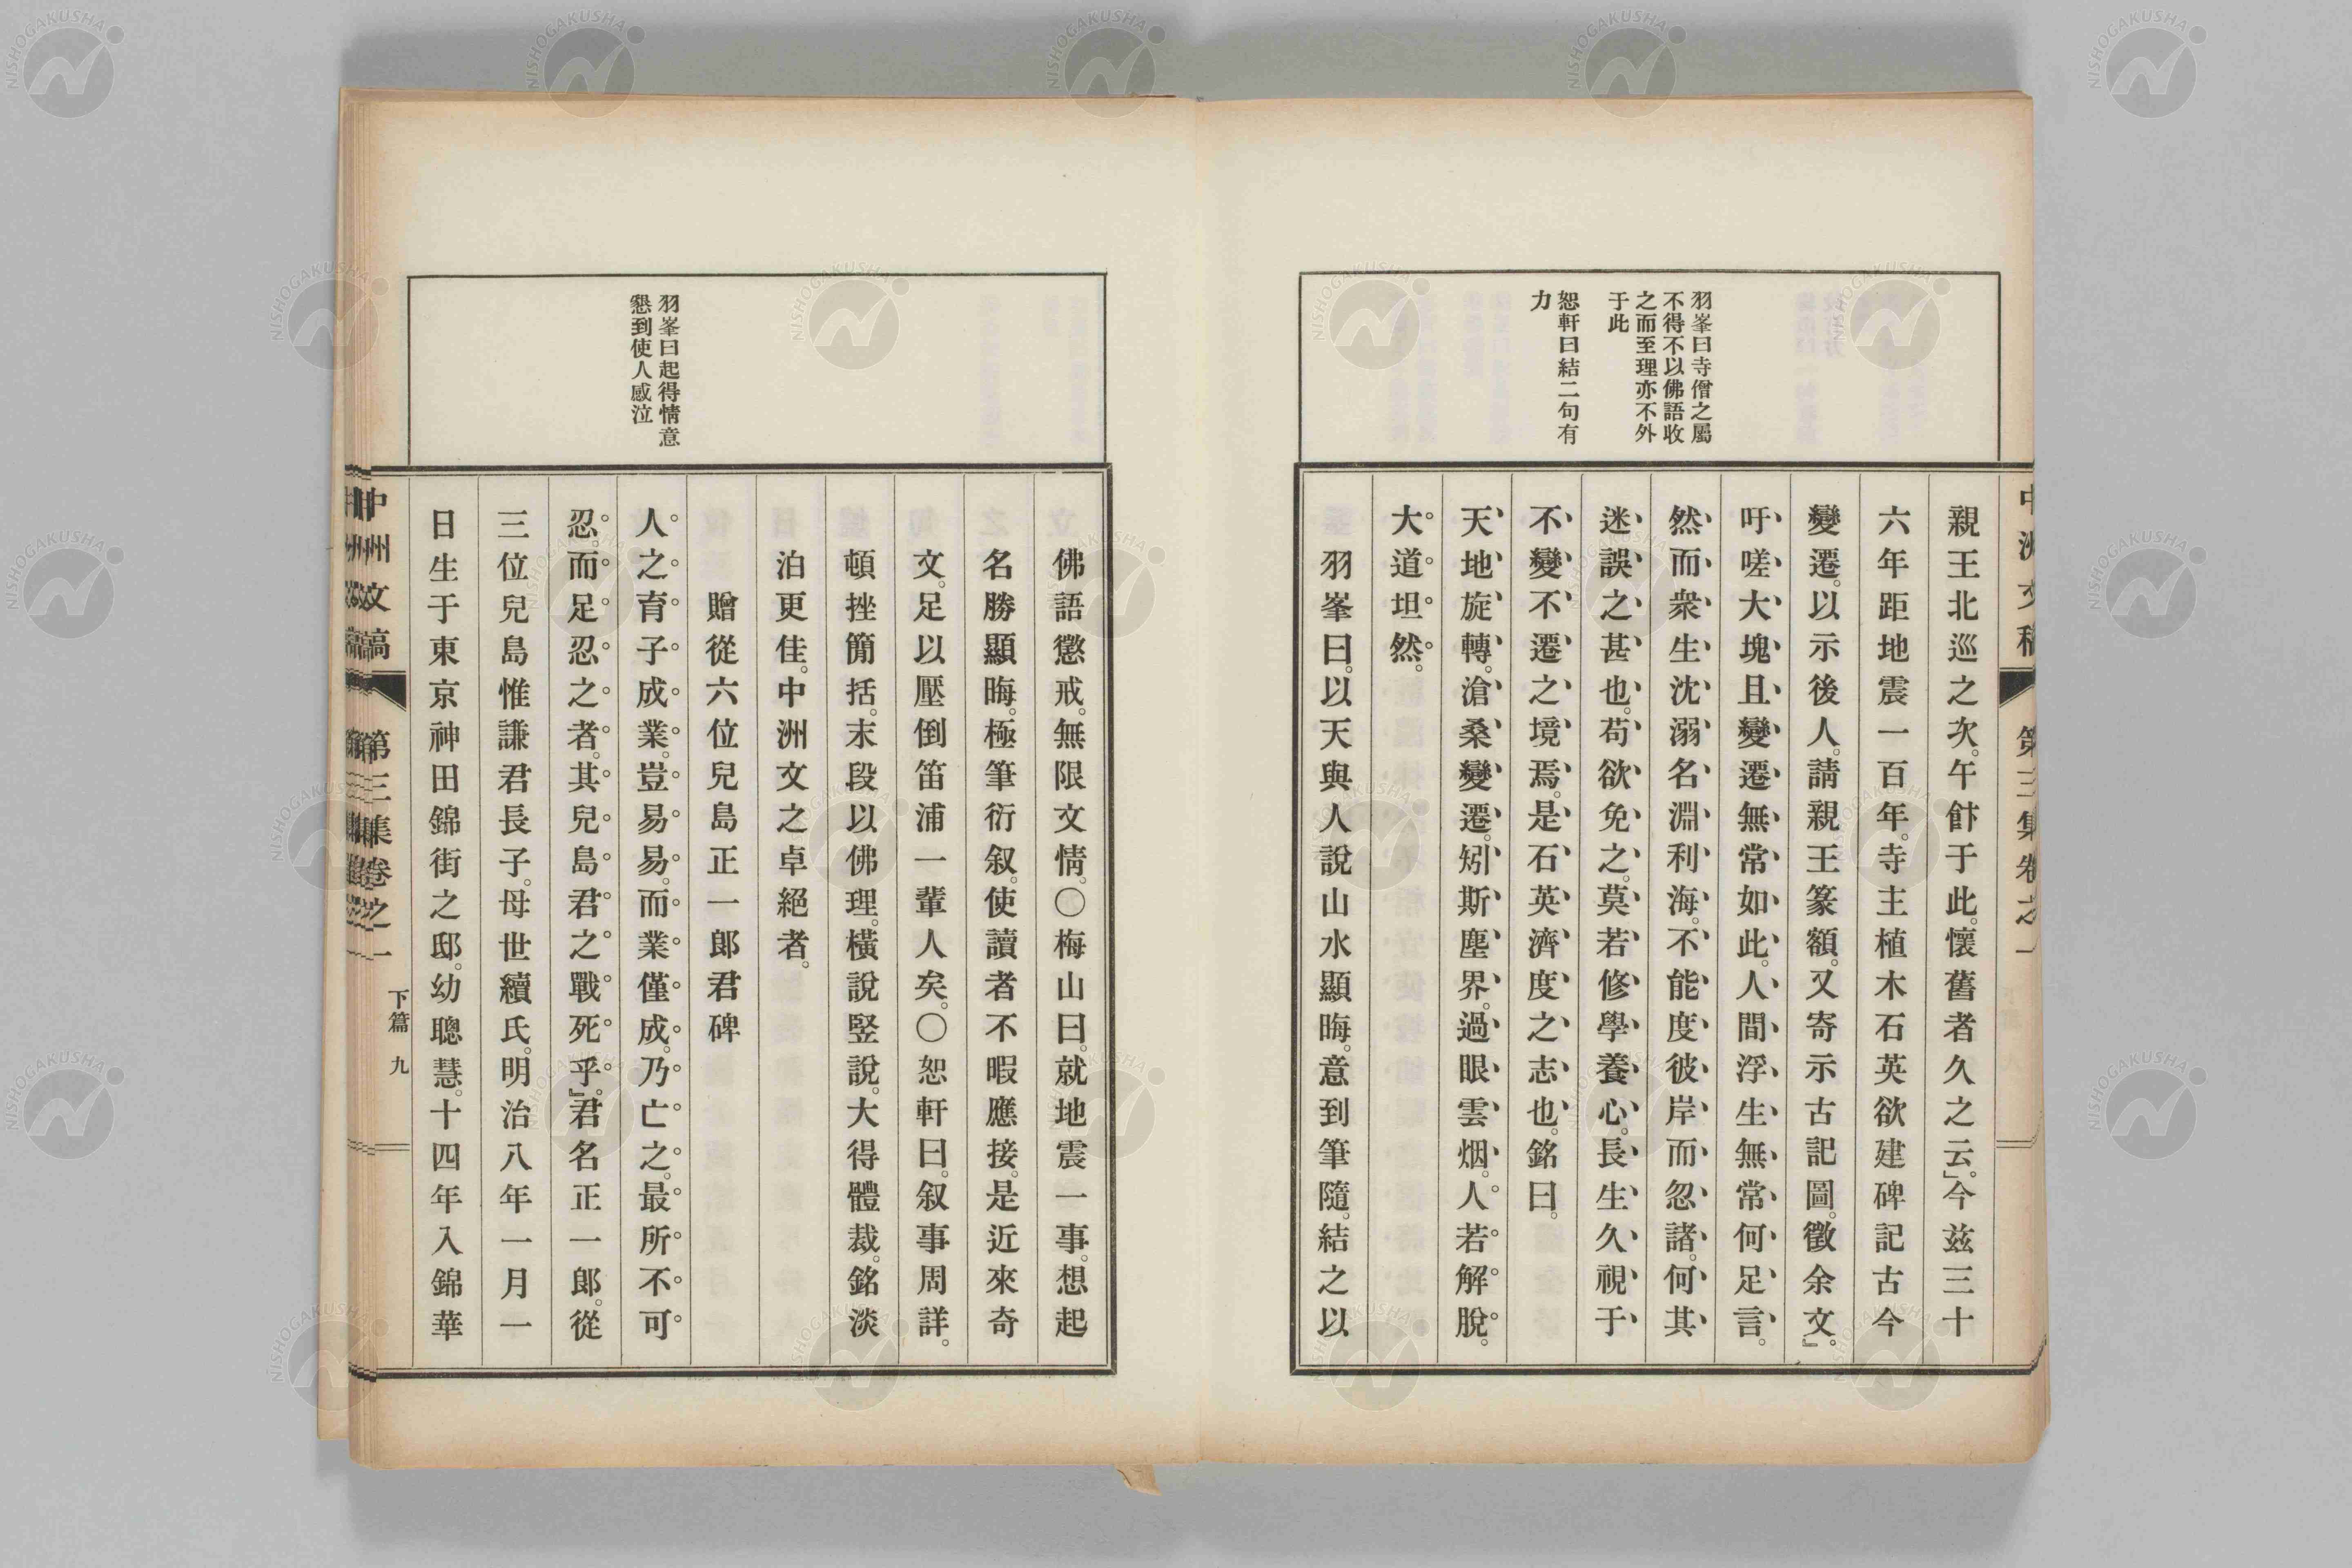 羽峯曰寺僧之屬
不得不以佛語收
之而至理亦不外
于此
恕軒曰結二句有
力
親王北巡之次。午餅于此。懷舊者久之云。」今茲三十
六年距地震一百年。寺主植木石英欲建碑記古今
變遷。以示後人。請親王篆額。又寄示古記圖。徵余文。」
吁嗟大塊且變遷無常如此。人間浮生無常何足言。
然而衆生沈溺名淵利海。不能度彼岸而忽諸。何其
迷誤之甚也。苟欲免之。莫若修學養心。長生久視于
不變不遷之境焉。是石英濟度之志也。銘曰。
天地旋轉。滄桑變遷。矧斯塵界。過眼雲烟。人若解脫。
大道坦然。
羽峯曰。以天與人說山水顯晦。意到筆隨。結之以
羽峯曰起得情意
懇到使人感泣
佛語懲戒。無限文情。○梅山曰。就地震一事。想起
名勝顯晦。極筆衍叙。使讀者不暇應接。是近來奇
文。足以壓倒笛浦一輩人矣。○恕軒曰。叙事周詳。
頓挫簡括。末段以佛理。橫說竪說。大得體裁。銘淡
泊更佳。中洲文之卓絕者。
贈從六位兒島正一郎君碑
人之育子成業。豈易易。而業僅成。乃亡之。最所不可
忍。而足忍之者。其兒島君之戰死乎。」君名正一郎。從
三位兒島惟謙君長子。母世續氏。明治八年一月一
日生于東京神田錦街之邸。幼聰慧。十四年入錦華
中州文稿 第三集卷之一 下篇 九
NISHOGAKUSHA